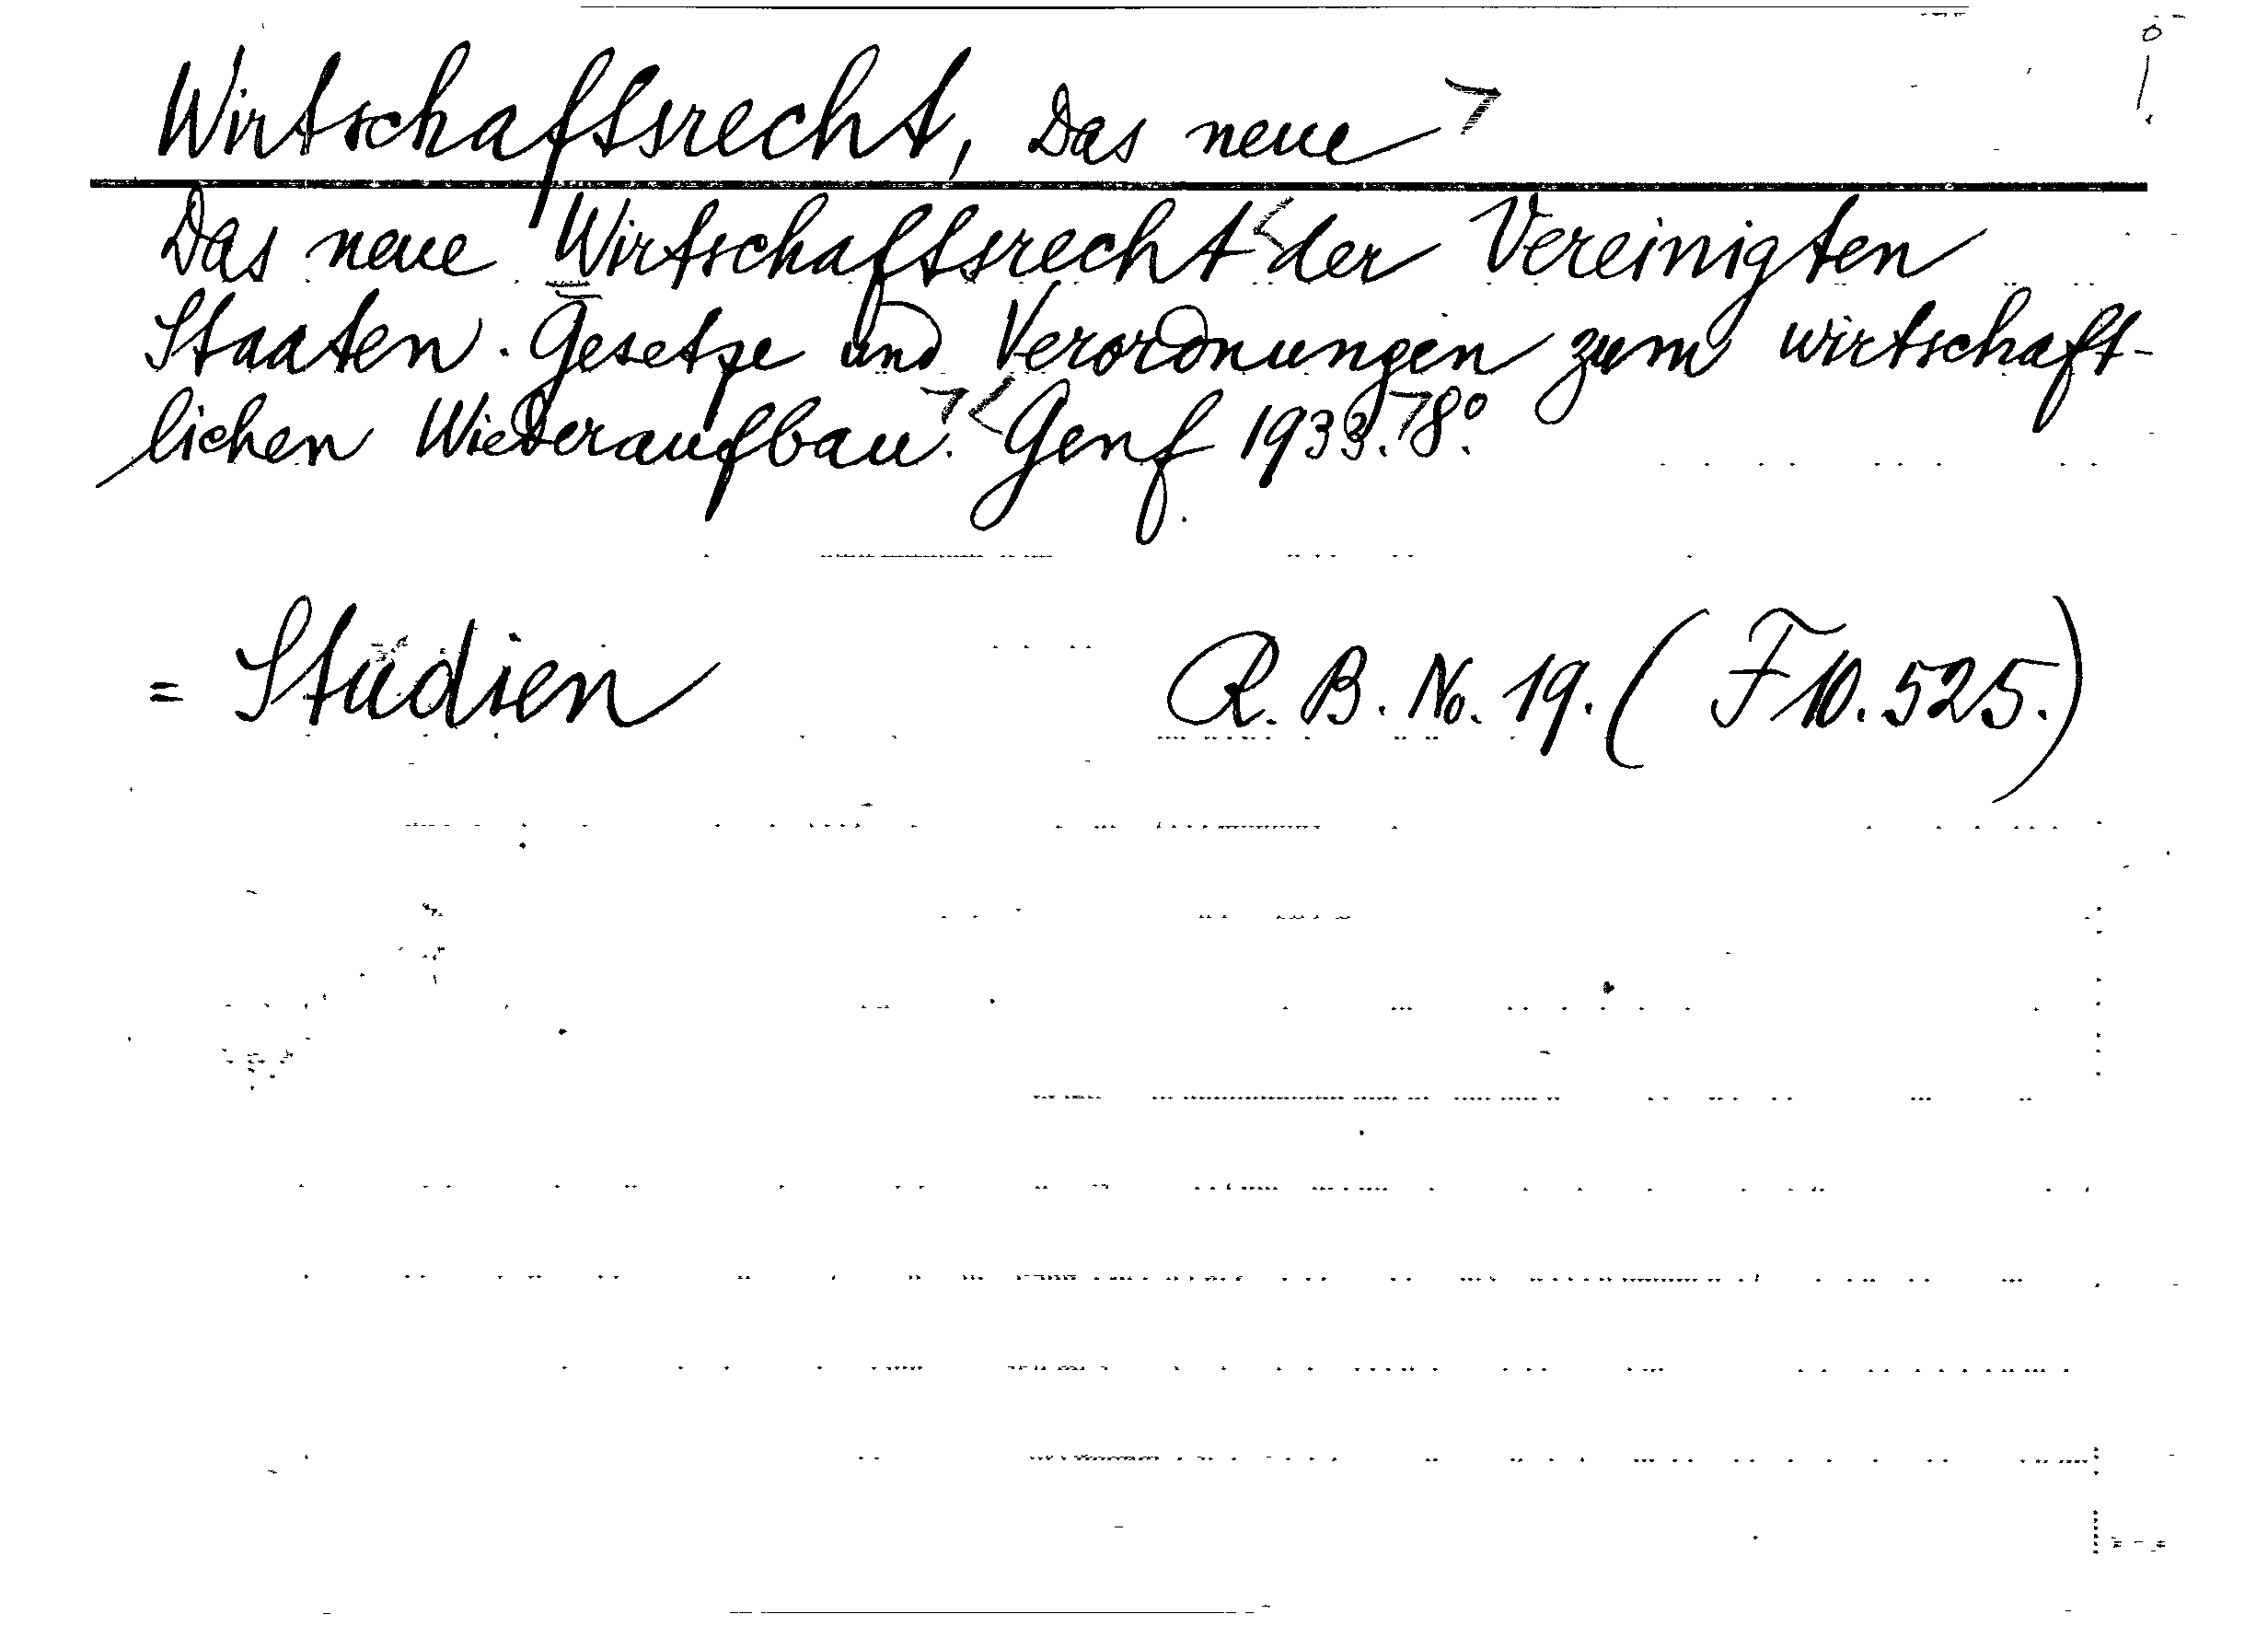 Wirtschaftsrecht, Das neue
Das neue Wirtschaftsrecht der Vereinigten
Staaten. Gesetze und Verordnungen zum wirtschaft-
lichen Wiederaufbau. Genf 1933. 8°.
= Studien R. B. No. 19. (F 10.525.)